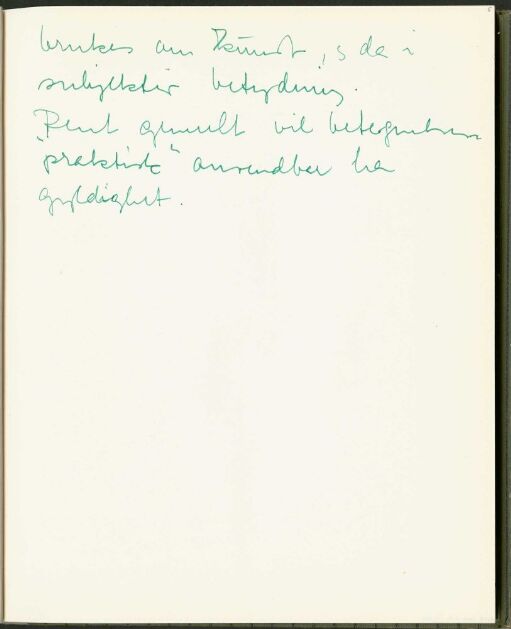 brukes om kunst, s da i
subjektiv betydning.
Rent generelt vil betegnelsen
"praktisk" anvendbar ha
gyldighet.